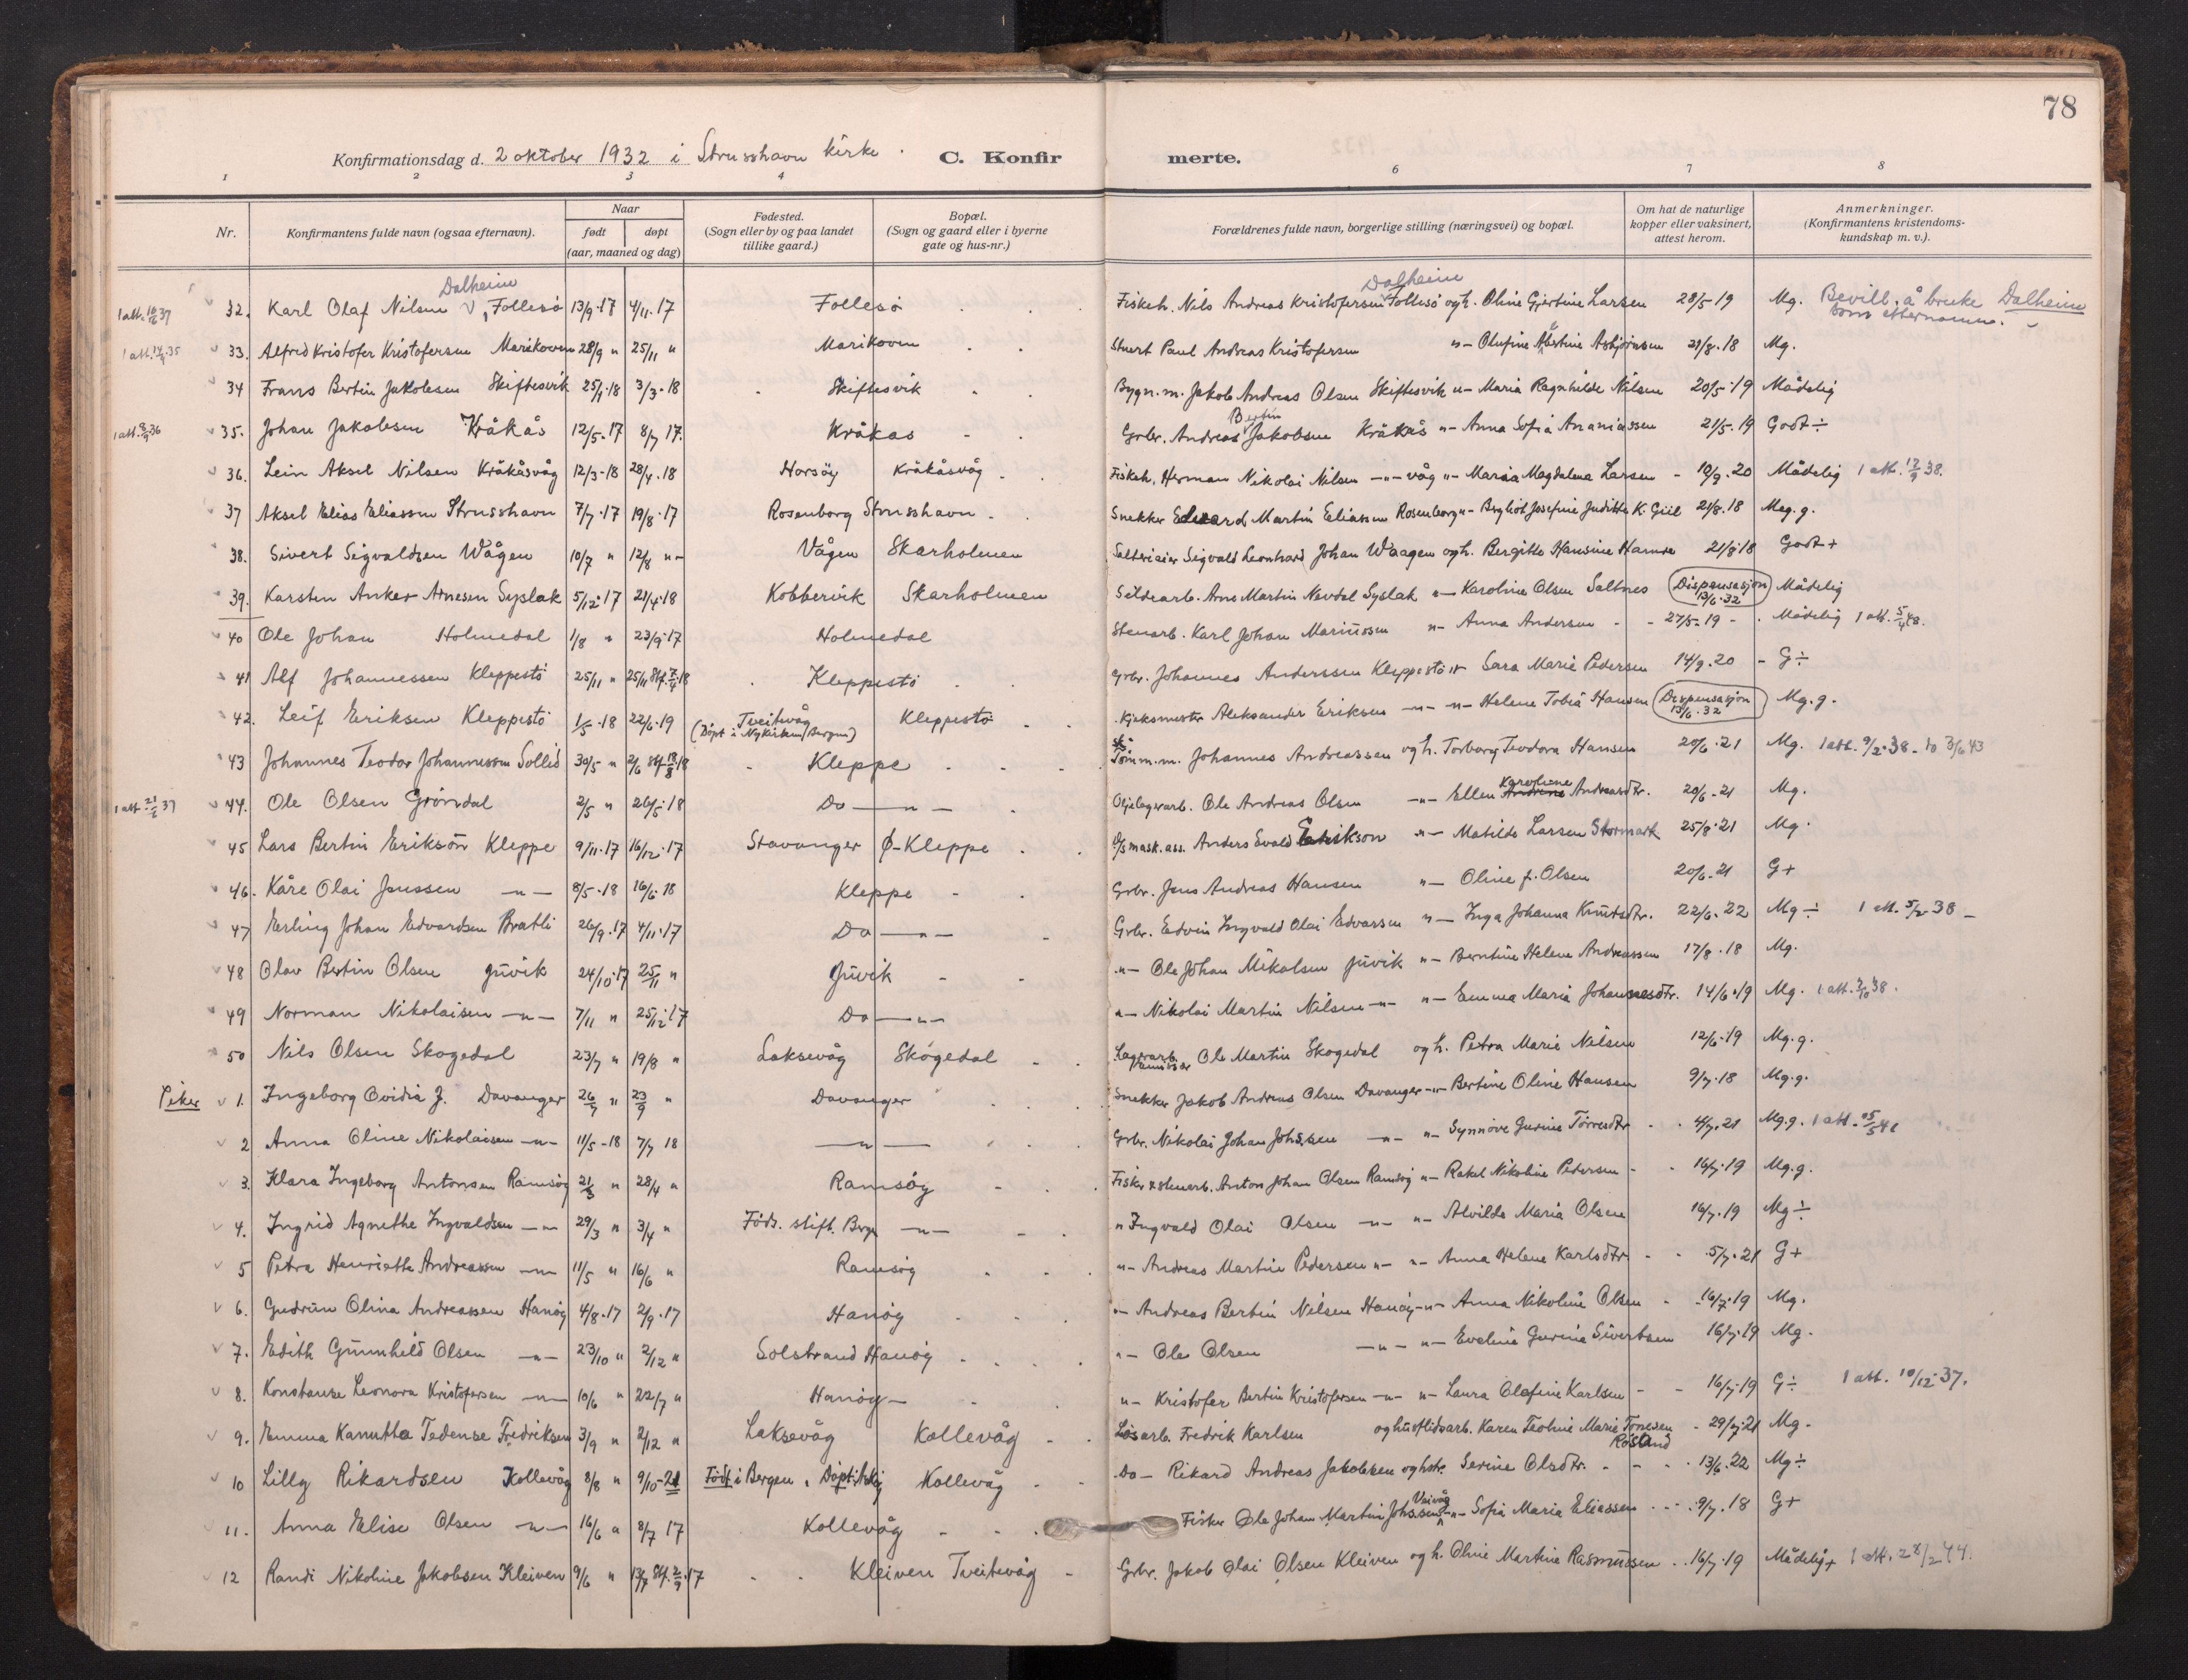 78
Konfirmationsdag d. 2 oktober 1932 i Strusshavn kirke. C. Konfirmerte.
1 2 3 4 6 7 8
Nr. Konfirmantens fulde navn (ogsaa efternavn). Naar født døpt (aar, maaned og dag) Fødested. (Sogn eller by og paa landet tillike gaard.) Bopæl. (Sogn og gaard eller i byerne gate og hus-nr.) Forældrenes fulde navn, borgerlige stilling (næringsvei) og bopæl. Om hat de naturlige kopper eller vaksinert, attest herom. Anmerkninger. (Konfirmantens kristendomskundskap m. v.).
1 att. 10/6 37 32. Karl Olaf Nilsen Dalheim Follesø 13/9-17 4/11-17 Follesø Fiskeh. Nils Andreas Kristofersen Dalheim Follesø og h. Oline Gjertine Larsen 28/5-19 Mg. Bevill. å bruke Dalheim som etternavn.
1 att. 35 33. Alfred Kristofer Kristofersen Marikoven 28/9 " 25/11 " Marikoven Stuert Paul Andreas Kristofersen "- Olufine Albertine Asbjörnsen 21/8-18 Mg.
34 Frans Bertin Jakobsen Skiftesvik 25/1-18 3/3-18 Skiftesvik Bygn.m. Jakob Andreas Olsen Skiftesvik "- Maria Ragnhilde Nilsen 20/5-19 Mådelig
1 att. 8/9 36 35. Johan Jakobsen Kråkås 12/5-17 8/7 17. Kråkas Grbr. Andreas Bertin Jakobsen Kråkås "- Anna Sofia Ananiassen 21/5-19 Godt ÷
36. Lein Aksel Nilsen Kråkåsvåg 12/3-18 28/4-18 Horsöy Kråkåsvåg Fiskeh. Herman Nikolai Nilsen -"- våg "- Maria Magdalena Larsen 10/9.20 Mådelig 1 att. 12/9 38.
37 Aksel Elias Eliassen Strusshavn 7/7-17 19/8-17 Rosenborg Strusshavn Snekker Edvard Martin Eliassen Rosenborg "- Bergliot Josefine Judithe K. Giil 21/8.18 Meg. g.
38. Sivert Sigvaldsen Wågen 10/7 " 12/8 "- Vågen Skarholmen Salteieier Sigvald Leonhard Johan Waagen og h. Bergitte Hansine Hamre 21/8-18 Godt +
39. Karsten Anker Arnesen Syslak 5/12-17 21/4-18 Kobbervik Skarholmen Sildearb. Arne Martin Nevdal Syslak "- Karoline Olsen Saltnes Dispensasjon 13/6.32 Mådelig
40 Ole Johan Holmedal 1/8 " 23/9-17 Holmedal Stenarb. Karl Johan Mariussen "- Anna Andersen 27/5-19 Mådelig 1 att. 5/4 48.
41 Alf Johannessen Kleppestö 25/11 " 25/11 Stf. 7/4-18 Kleppestö Grbr. Johannes Anderssen Kleppestö "- Sara Marie Pedersen 14/9.20 G ÷
42. Leif Eriksen Kleppestö 1/5-18 22/6-19 Tveitevåg (Döpt i Nykirken, Bergen) Kleppestö Kjeksmestr Aleksander Eriksen -"- "- Helene Tobia Hansen Dispensasjon 13/6.32 Mg. g.
43 Johannes Teodor Johannessen Sollid 30/5 " 2/6 Stf. 18/8 18 Kleppe Tömm.m. Johannes Andreassen og h. Torborg Teodora Hansen 20/6.21 Mg. 1 att. 9/2-38 - 10 3/6 43
1 att. 21/2 37 44. Ole Olsen Gröndal 2/5 " 26/5-18 Do -"- Oljelagerarb. Ole Andreas Olsen -"- Ellen Karoline Andrine Andreasdtr. 20/6-21 Mg.
45 Lars Bertin Erikson Kleppe 9/11-17 16/12-17 Stavanger Ø-Kleppe D/S mask.ass. Anders Evald Erikson "- Matilde Larsen Stormark 25/8-21 Mg.
46. Kåre Olai Janssen -"- 8/5-18 16/6-18 Kleppe Grbr. Jens Andreas Hansen "- Oline f. Olsen 20/6-21 G+
47 Erling Johan Edvardsen Bratli 26/9-17 4/11-17 Do -"- Grbr. Edvin Ingvald Olai Edvarssen "- Inga Johanna Knutsdtr. 22/6.22 Mg ÷ 1 att. 5/2-38 -
48 Olav Bertin Olsen Juvik 24/10-17 25/11 " Juvik "- Ole Johan Mikalsen Juvik "- Berntine Helene Andreassen 17/8.18 Mg.
49 Norman Nikolaisen -"- 7/11 " 25/12-17 Do -"- "- Nikolai Martin Nilsen -"- "- Emma Maria Johannesdtr. 14/6-19 Mg. 1 att. 3/10 38.
50 Nils Olsen Skogedal 23/7 " 19/8 " Laksevåg Skogedal Lagerarb. Ole Martin Skogedal og h. Petra Marie Nilsen 12/6-19 Mg. g.
Piker 1. Ingeborg Ovidia J. Davanger 26/7 " 23/9 " Davanger Snekker Jakob Andreas Olsen Davanger -"- Bertine Oline Hansen 9/7-18 Mg. g.
2 Anna Oline Nikolaisen -"- 11/5-18 7/7 18 -"- Grbr. Nikolai Johan Johs.sen -"- "- Synnöve Gurine Törresdtr 4/7.21 Mg. g. 1 att. 25/5 41
3. Klara Ingeborg Antonsen Ramsöy 21/3 " 28/4 " Ramsöy Fisker & stenarb. Anton Johan Olsen Ramsöy "- Rakel Nikoline Pedersen 16/7-19 Mg. g.
4. Ingrid Agnethe Ingvaldsen -"- 29/3 " 3/4 " Föds. stift. Berg. -"- " Ingvald Olai Olsen -"- "- Alvilde Maria Olsen 16/7.19 Mg ÷
5 Petra Henriette Andreassen -"- 11/5 " 16/6 " Ramsöy "- Andreas Martin Pedersen "- "- Anna Helene Karlsdtr 5/7.21 G+
6. Gudrun Olina Andreassen Hanöy 4/8-17 2/9-17 Hanöy "- Andreas Bertin Nilsen Hanöy -"- Anna Nikoline Olsen 16/7-19 Mg.
7. Edith Gunnhild Olsen -"- 23/10 " 2/12 " Solstrand Hanöy "- Ole Olsen -"- "- Eveline Gurine Sivertsen 16/7-19 Mg.
8. Konstanse Leonora Kristofersen -"- 10/6 " 22/7 " Hanöy "- Kristofer Bertin Kristofersen -"- "- Laura Olefine Karlsen 16/7-19 G ÷ 1 att. 10/12-37.
9. Emma Kanutta Tedense Fredriksen 3/9 " 2/12 " Laksevåg Kollevåg Lösarb. Fredrik Karlsen og husflidsarb. Karen Teoline Marie Tönesen Rosland 29/7-21 Mg.
10 Lilly Rikardsen Kollevåg 8/8 " 9/10-21 Födt i Bergen. Döpt i Askøy Kollevåg Do- Rikard Andreas Jakobsen og hstr. Serine Olsdtr. 13/6.22 Mg ÷
11. Anna Elise Olsen -"- 16/6 " 8/7 17 Kollevåg Fisker Ole Johan Martin Johs.sen Vaivåg "- Sofia Maria Eliassen 9/7.18 G+
12 Randi Nikoline Jakobsen Kleiven 9/6 " 13/7 Stf. 2/9-17 Kleiven Tveitevåg Grbr. Jakob Olai Olsen Kleiven og h. Oline Martine Rasmussen 16/7-19 Mådelig + 1 att. 28/2 44.